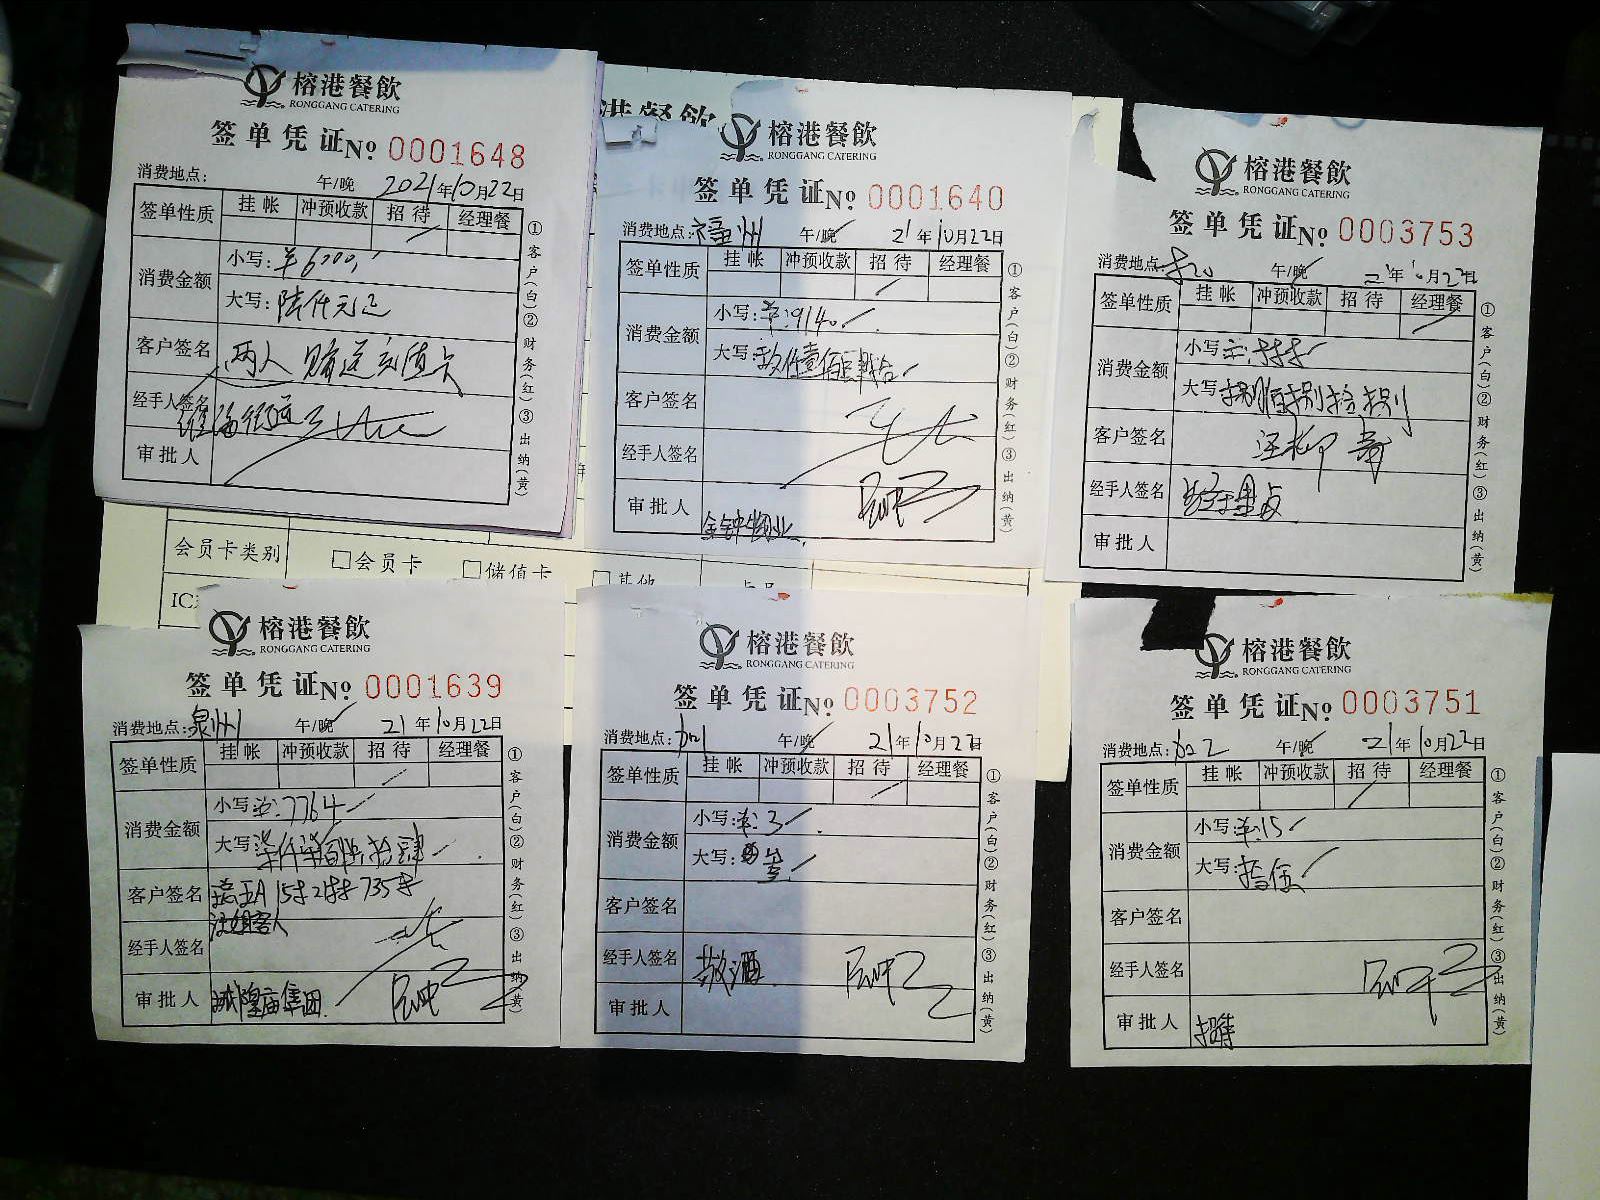 榕港餐飲
RONGGANG CATERING
签单凭证 No 0001648
消费地点: 午/晚 2021年10月22日
签单性质 挂帐 冲预收款 招待 经理餐
消费金额 小写: ¥6000
大写: 陆仟元正
客户签名 两人 赠送充值卡
经手人签名
审批人
①客户(白)②财务(红)③出纳(黄)
港餐飲
榕港餐飲
RONGGANG CATERING
签单凭证 No 0001640
消费地点: 福州 午/晚 21年10月22日
签单性质 挂帐 冲预收款 招待 经理餐
消费金额 小写: ¥:9140
大写: 玖仟壹佰肆拾
客户签名
经手人签名
审批人 金钟物业
①客户(白)②财务(红)③出纳(黄)
榕港餐飲
RONGGANG CATERING
签单凭证 No 0003753
消费地点: 午/晚 21年10月22日
签单性质 挂帐 冲预收款 招待 经理餐
消费金额 小写
大写
客户签名
经手人签名
审批人
①客户(白)②财务(红)③出纳(黄)
会员卡类别 □会员卡 □储值卡 □其他
IC
榕港餐飲
RONGGANG CATERING
签单凭证 No 0001639
消费地点: 泉州 午/晚 21年10月22日
签单性质 挂帐 冲预收款 招待 经理餐
消费金额 小写 ¥:7764
大写: 柒仟柒佰陆拾肆
客户签名
经手人签名
审批人 城隍庙集团
①客户(白)②财务(红)③出纳(黄)
榕港餐飲
RONGGANG CATERING
签单凭证 No 0003752
消费地点: 午/晚 21年10月22日
签单性质 挂帐 冲预收款 招待 经理餐
消费金额 小写: ¥:3
大写: 叁
客户签名
经手人签名 敬酒
审批人
①客户(白)②财务(红)③出纳(黄)
榕港餐飲
RONGGANG CATERING
签单凭证 No 0003751
消费地点: 午/晚 21年10月22日
签单性质 挂帐 冲预收款 招待 经理餐
消费金额 小写: ¥:15
大写: 拾伍
客户签名
经手人签名
审批人
①客户(白)②财务(红)③出纳(黄)